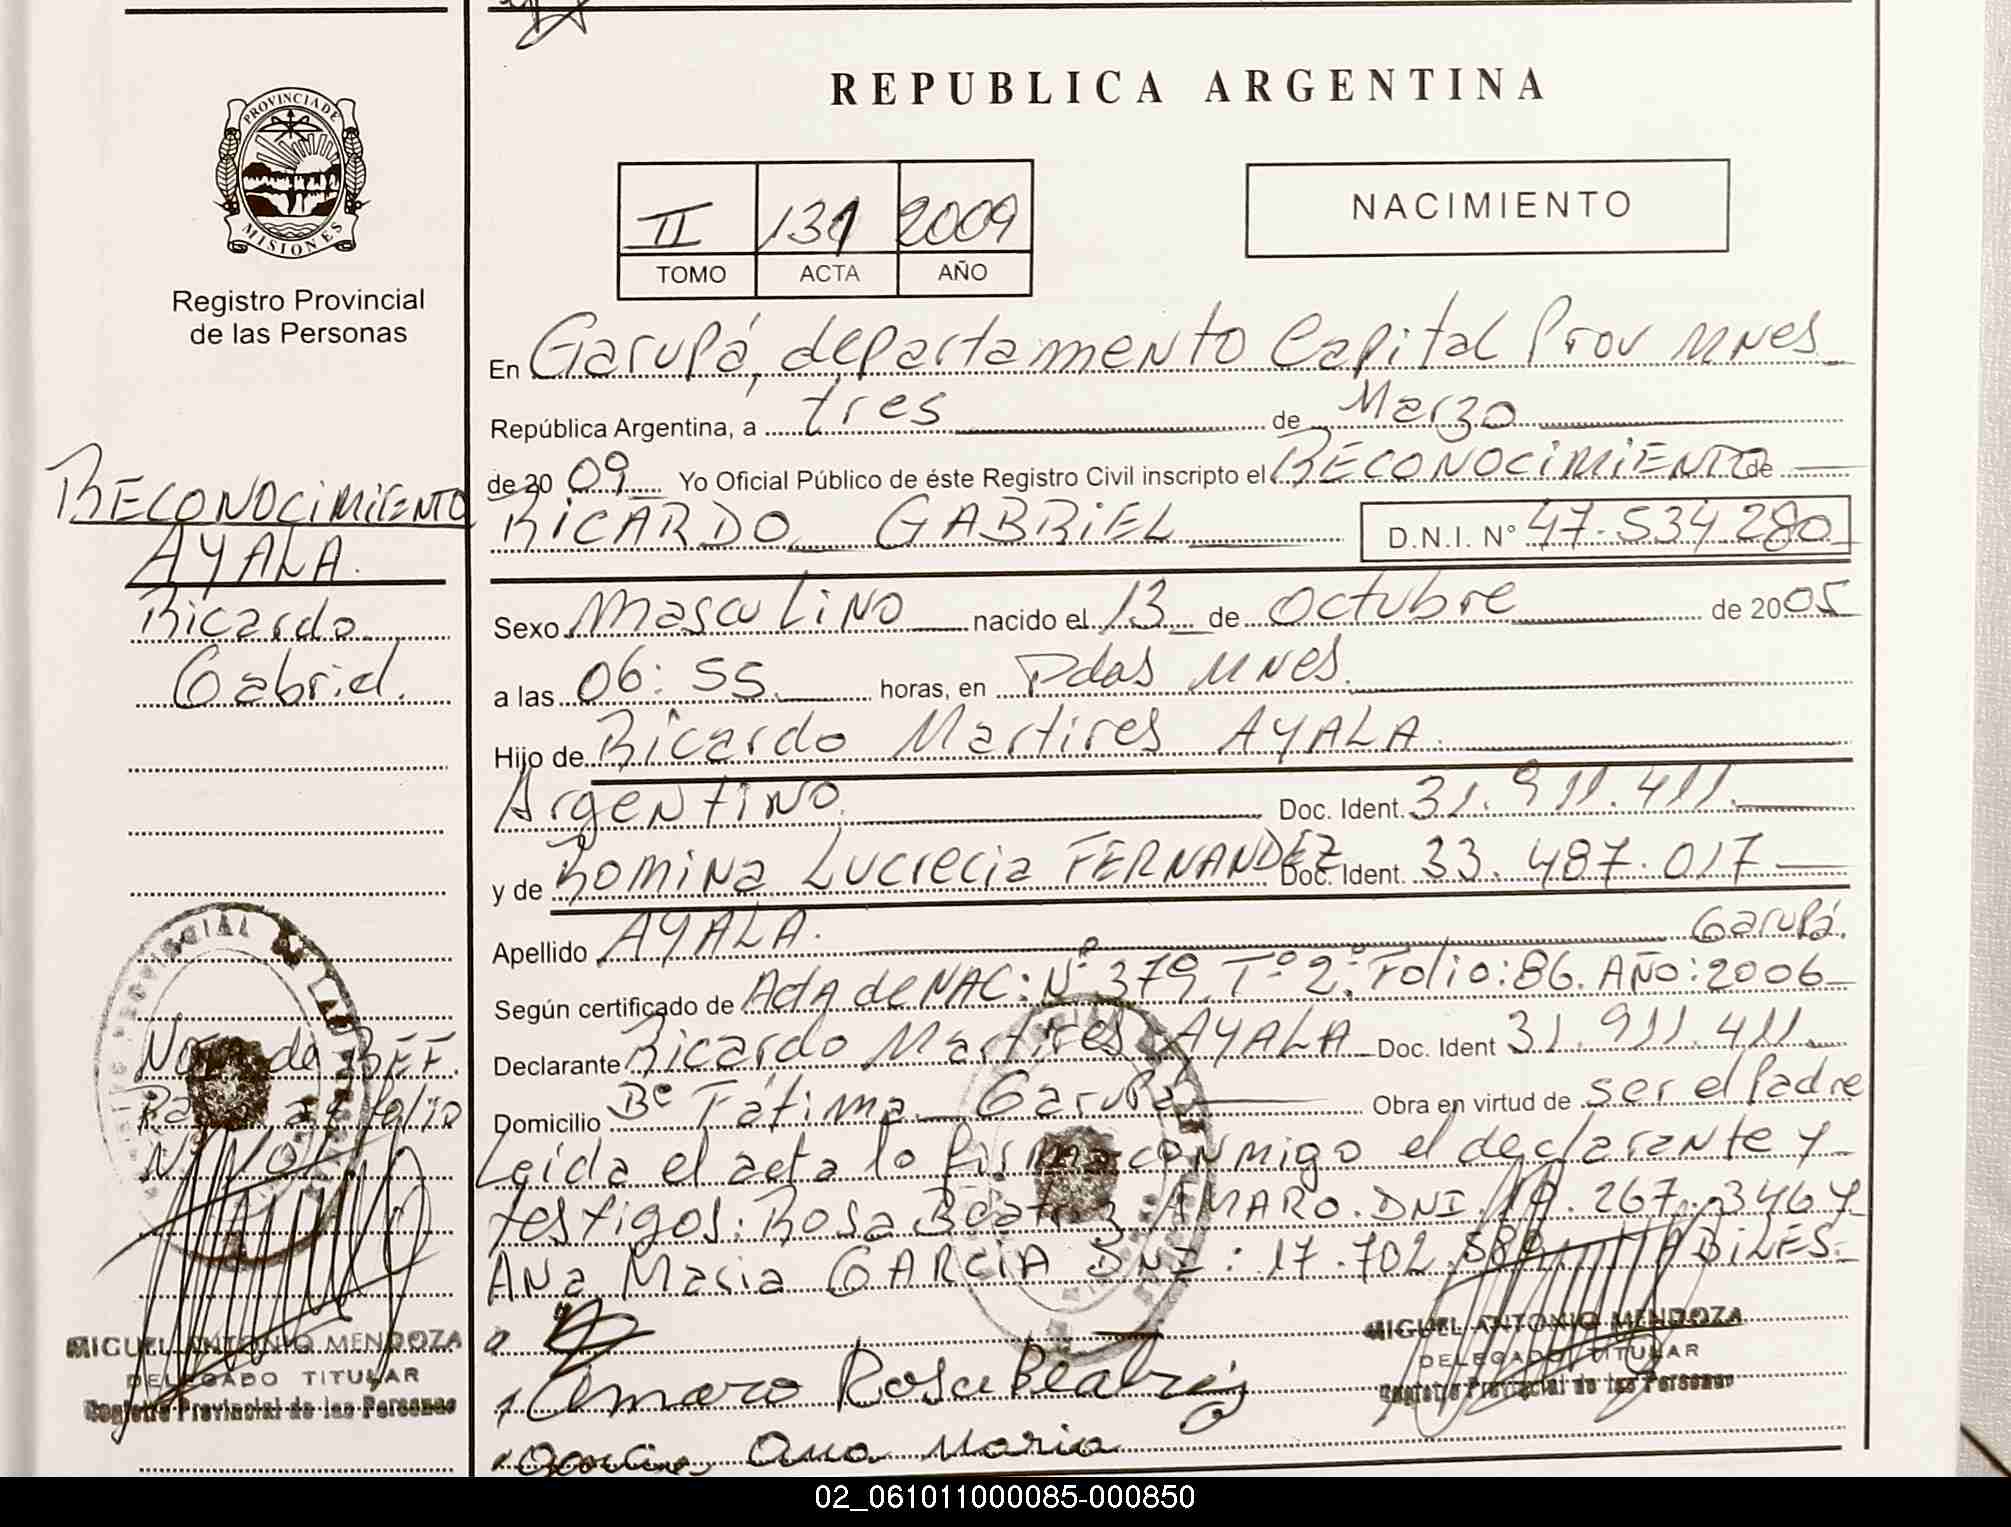 REPUBLICA ARGENTINA
PROVINCIA DE
MISIONES
Registro Provincial
de las Personas
II 131 2009
TOMO ACTA AÑO
NACIMIENTO
RECONOCIMIENTO
AYALA.
Ricardo
Gabriel.
En Garupá, departamento Capital Prov MNes
República Argentina, a tres de Marzo
de 20 09 Yo Oficial Público de éste Registro Civil inscripto el RECONOCIMIENTO de
RICARDO GABRIEL D.N.I. N° 47.534 280
Sexo Masculino nacido el 13 de Octubre de 2005
a las 06:55 horas, en Pdas MNes.
Hijo de Ricardo Martires AYALA.
Argentino. Doc. Ident. 31.911.411.
y de Romina Lucrecia FERNANDEZ Doc. Ident. 33.487.017
Apellido AYALA. Garupá.
Según certificado de Acta de NAC: N° 379 T° 2° Folio: 86. AÑO: 2006
Declarante Ricardo Martires AYALA Doc. Ident 31.911.411.
Domicilio B° Fátima Garupá Obra en virtud de ser el Padre
Leída el acta lo firma conmigo el declarante y
testigos: Rosa Beatriz AMARO. DNI. 267.
Ana Maria GARCIA DNI: 17.702. HABILES.
Amaro Rosa Beatriz
Garcia Ana Maria
MIGUEL ANTONIO MENDOZA
DELEGADO TITULAR
Registro Provincial de las Personas
Nota de REF.
folio
MIGUEL ANTONIO MENDOZA
DELEGADO TITULAR
Registro Provincial de las Personas
02_061011000085-000850